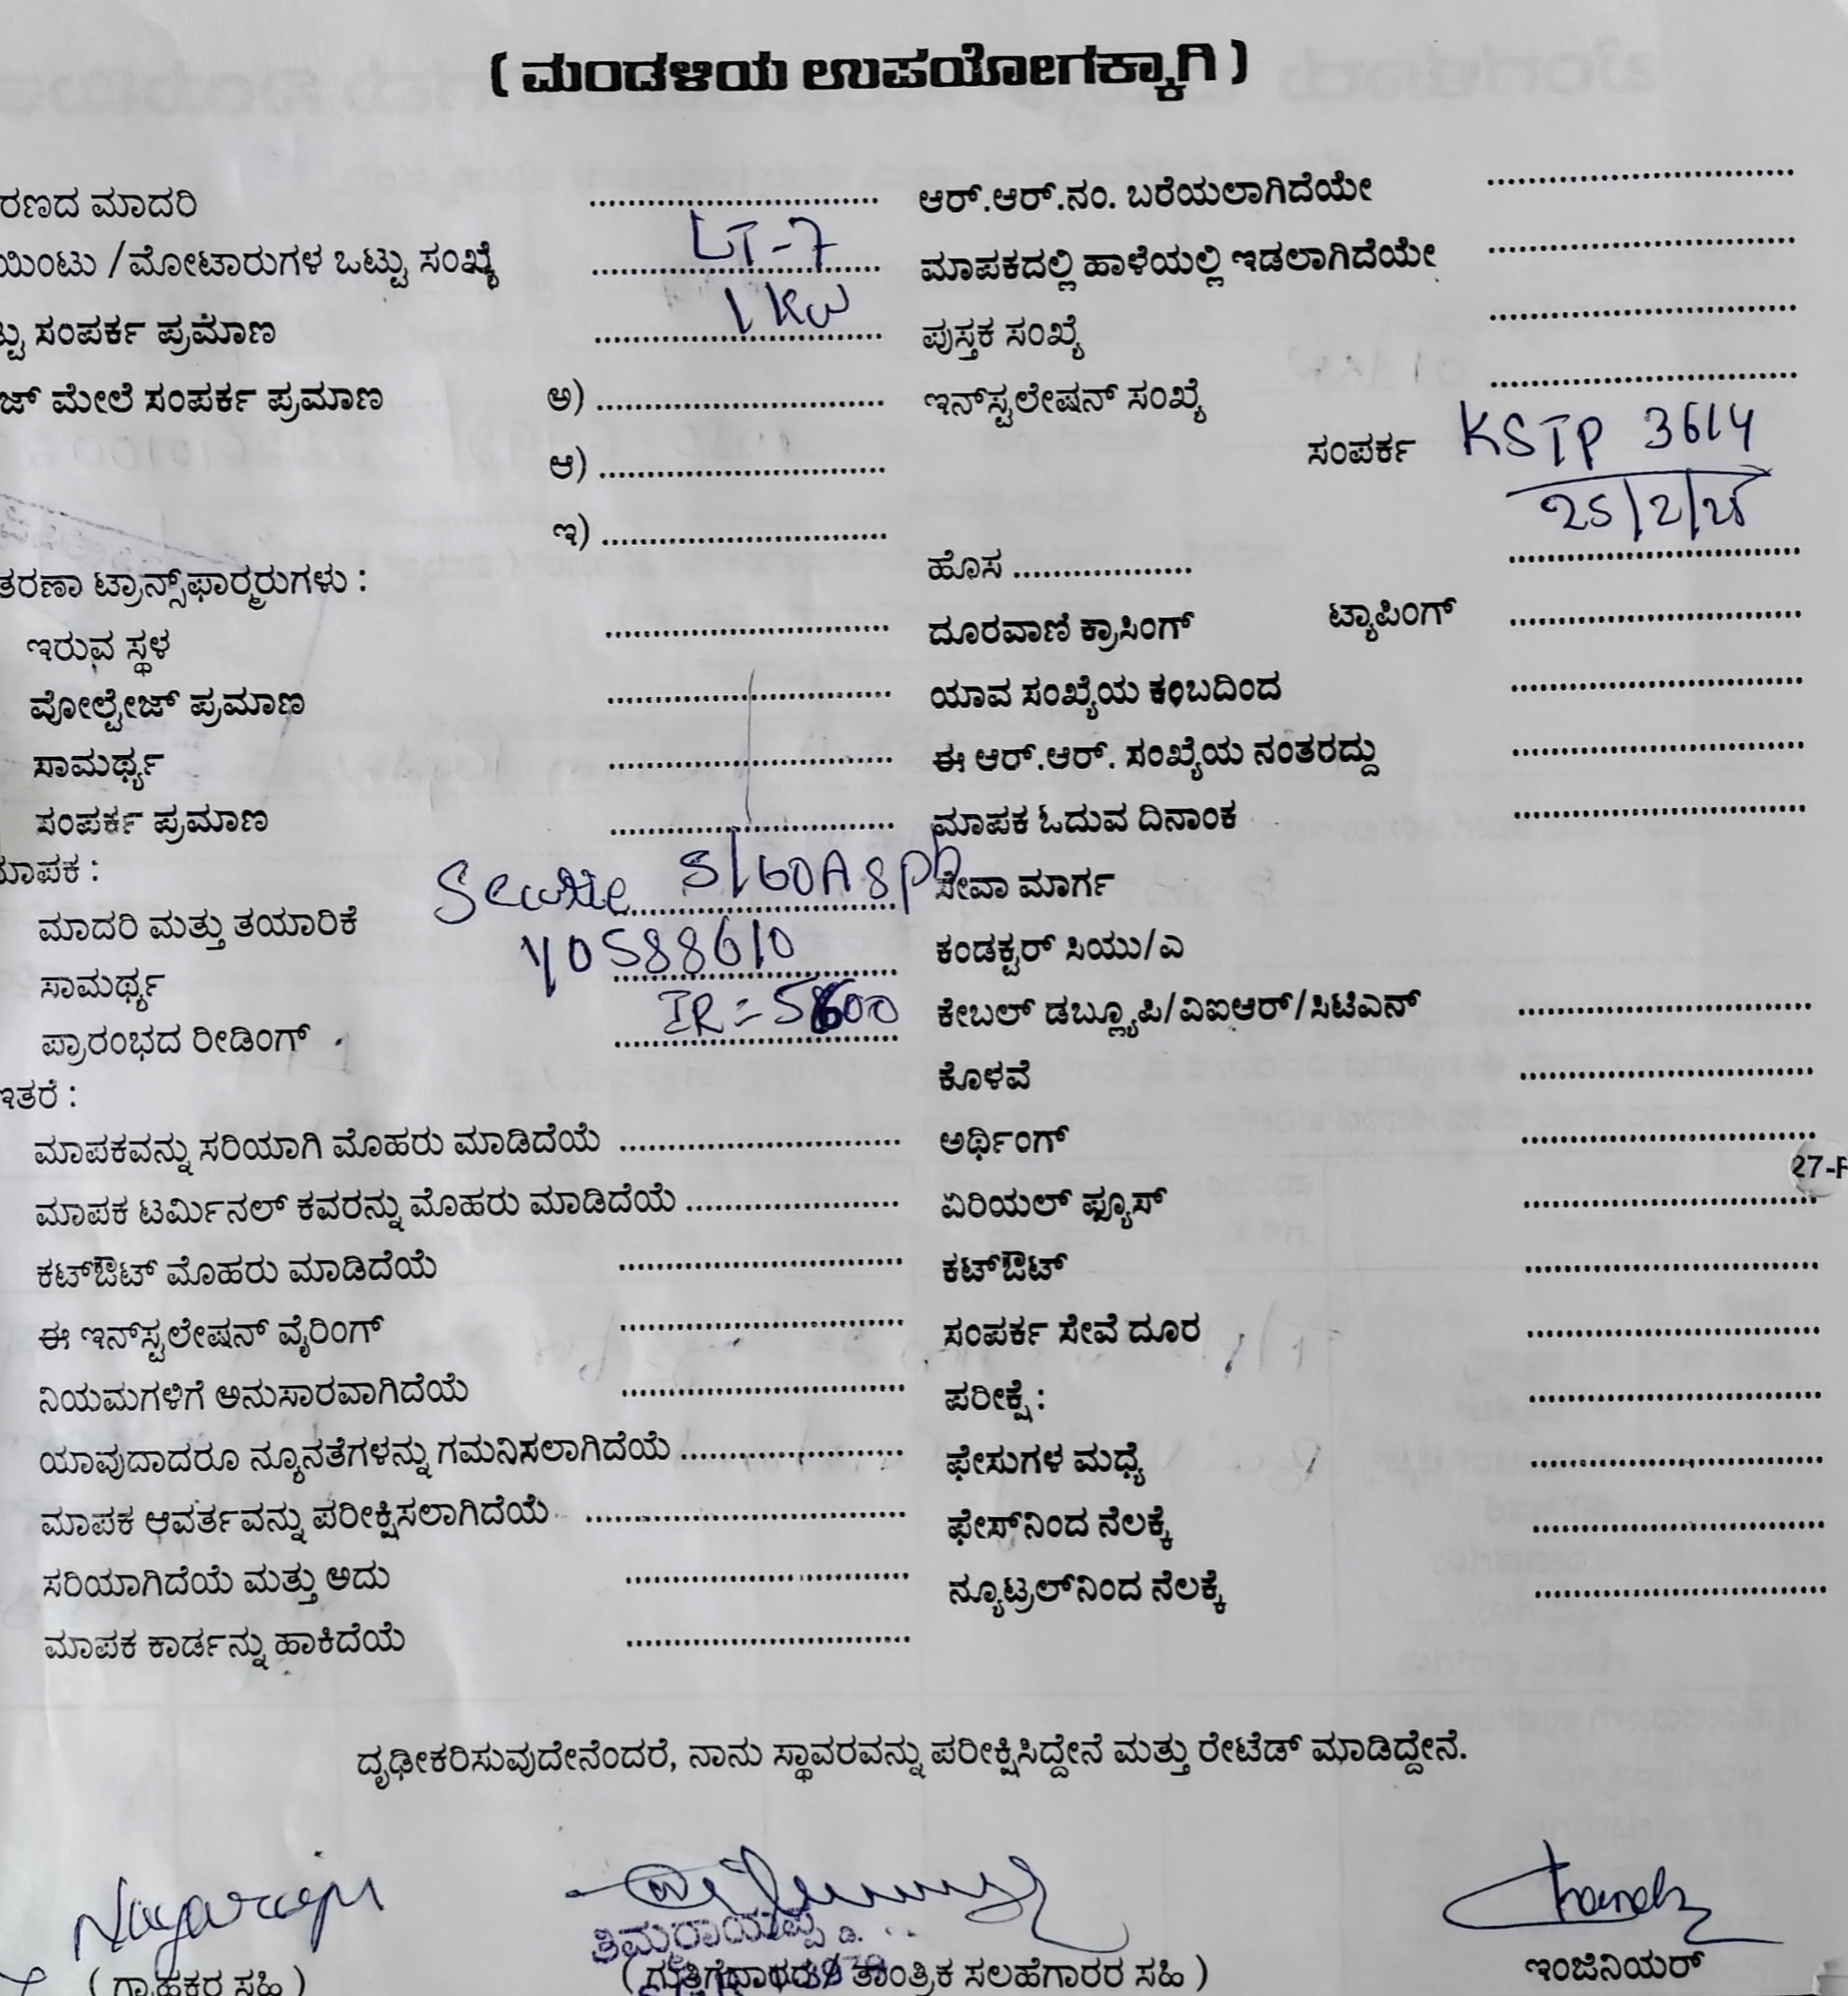 ( ಮಂಡಳಿಯ ಉಪಯೋಗಕ್ಕಾಗಿ )
ರಣದ ಮಾದರಿ ..............................
ಯಿಂಟು /ಮೋಟಾರುಗಳ ಒಟ್ಟು ಸಂಖ್ಯೆ LT-7
ಟ್ಟು ಸಂಪರ್ಕ ಪ್ರಮಾಣ 1 KW
ಜ್ ಮೇಲೆ ಸಂಪರ್ಕ ಪ್ರಮಾಣ ಅ) ..............................
ಆ) ..............................
ಇ) ..............................
ತರಣಾ ಟ್ರಾನ್ಸ್‌ಫಾರ್ಮರುಗಳು :
ಇರುವ ಸ್ಥಳ ..............................
ವೋಲ್ಟೇಜ್ ಪ್ರಮಾಣ ..............................
ಸಾಮರ್ಥ್ಯ ..............................
ಸಂಪರ್ಕ ಪ್ರಮಾಣ ..............................
ಮಾಪಕ :
ಮಾದರಿ ಮತ್ತು ತಯಾರಿಕೆ 5/60A
ಸಾಮರ್ಥ್ಯ
ಪ್ರಾರಂಭದ ರೀಡಿಂಗ್ IR =
ಇತರೆ :
ಮಾಪಕವನ್ನು ಸರಿಯಾಗಿ ಮೊಹರು ಮಾಡಿದೆಯೆ ..............................
ಮಾಪಕ ಟರ್ಮಿನಲ್ ಕವರನ್ನು ಮೊಹರು ಮಾಡಿದೆಯೆ ......................
ಕಟ್‌ಔಟ್ ಮೊಹರು ಮಾಡಿದೆಯೆ ..............................
ಈ ಇನ್‌ಸ್ಟಲೇಷನ್ ವೈರಿಂಗ್ ..............................
ನಿಯಮಗಳಿಗೆ ಅನುಸಾರವಾಗಿದೆಯೆ ..............................
ಯಾವುದಾದರೂ ನ್ಯೂನತೆಗಳನ್ನು ಗಮನಿಸಲಾಗಿದೆಯೆ ......................
ಮಾಪಕ ಆವರ್ತವನ್ನು ಪರೀಕ್ಷಿಸಲಾಗಿದೆಯೆ ..............................
ಸರಿಯಾಗಿದೆಯೆ ಮತ್ತು ಅದು ..............................
ಮಾಪಕ ಕಾರ್ಡನ್ನು ಹಾಕಿದೆಯೆ ..............................
ಆರ್.ಆರ್.ನಂ. ಬರೆಯಲಾಗಿದೆಯೇ ..............................
ಮಾಪಕದಲ್ಲಿ ಹಾಳೆಯಲ್ಲಿ ಇಡಲಾಗಿದೆಯೇ ..............................
ಪುಸ್ತಕ ಸಂಖ್ಯೆ ..............................
ಇನ್‌ಸ್ಟಲೇಷನ್ ಸಂಖ್ಯೆ ..............................
ಸಂಪರ್ಕ KSTP 3614
25/2/25
ಹೊಸ ................... ..............................
ದೂರವಾಣಿ ಕ್ರಾಸಿಂಗ್ ಟ್ಯಾಪಿಂಗ್ ..............................
ಯಾವ ಸಂಖ್ಯೆಯ ಕಂಬದಿಂದ ..............................
ಈ ಆರ್.ಆರ್. ಸಂಖ್ಯೆಯ ನಂತರದ್ದು ..............................
ಮಾಪಕ ಓದುವ ದಿನಾಂಕ ..............................
ಸೇವಾ ಮಾರ್ಗ
ಕಂಡಕ್ಟರ್ ಸಿಯು/ಎ
ಕೇಬಲ್ ಡಬ್ಲ್ಯೂಪಿ/ವಿಐಆರ್/ಸಿಟಿಎನ್ ..............................
ಕೊಳವೆ ..............................
ಅರ್ಥಿಂಗ್ ..............................
27-F
ಏರಿಯಲ್ ಫ್ಯೂಸ್ ..............................
ಕಟ್‌ಔಟ್ ..............................
ಸಂಪರ್ಕ ಸೇವೆ ದೂರ ..............................
ಪರೀಕ್ಷೆ : ..............................
ಫೇಸುಗಳ ಮಧ್ಯೆ ..............................
ಫೇಸ್‌ನಿಂದ ನೆಲಕ್ಕೆ ..............................
ನ್ಯೂಟ್ರಲ್‌ನಿಂದ ನೆಲಕ್ಕೆ ..............................
ದೃಢೀಕರಿಸುವುದೇನೆಂದರೆ, ನಾನು ಸ್ಥಾವರವನ್ನು ಪರೀಕ್ಷಿಸಿದ್ದೇನೆ ಮತ್ತು ರೇಟೆಡ್ ಮಾಡಿದ್ದೇನೆ.
ತಿಮ್ಮರಾಯಪ್ಪ ಡಿ.
( ಗ್ರಾಹಕರ ಸಹಿ ) ( ಗುತ್ತಿಗೆದಾರರ / ತಾಂತ್ರಿಕ ಸಲಹೆಗಾರರ ಸಹಿ ) ಇಂಜಿನಿಯರ್